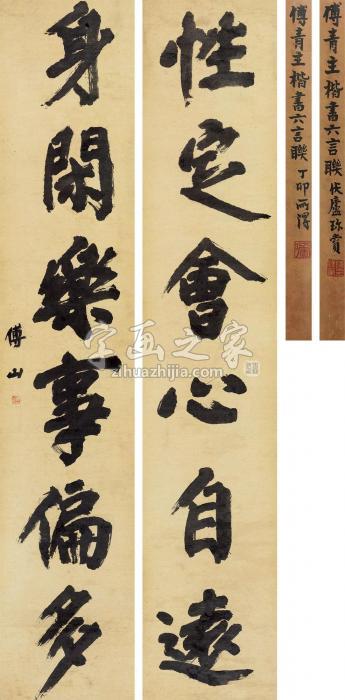 傅青主楷書六言聯 伏廬珍賞
傅青主楷書六言聯 丁卯雨淂
性定會心自遠
身閑樂事偏多
傅山
字画之家
zihuazhijia.com